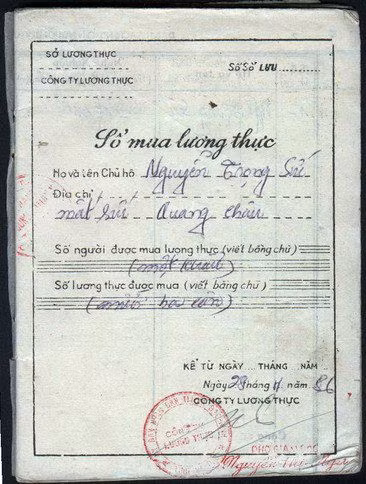 SỞ LƯƠNG THỰC
Số Sổ LƯU ..........
CÔNG TY LƯƠNG THỰC
Sổ mua lương thực
Họ và tên Chủ hộ Nguyễn Trọng
Địa chỉ
Quang châu
Số người được mua lương thực (viết bằng chữ)
(một khẩu)
Số lương thực được mua (viết bằng chữ)
(mười ba cân)
KỂ TỪ NGÀY ... THÁNG ... NĂM ...
Ngày 28 tháng 11 năm 86
CÔNG TY LƯƠNG THỰC
CÔNG TY
LƯƠNG THỰC
PHÓ GIÁM ĐỐC
Nguyễn